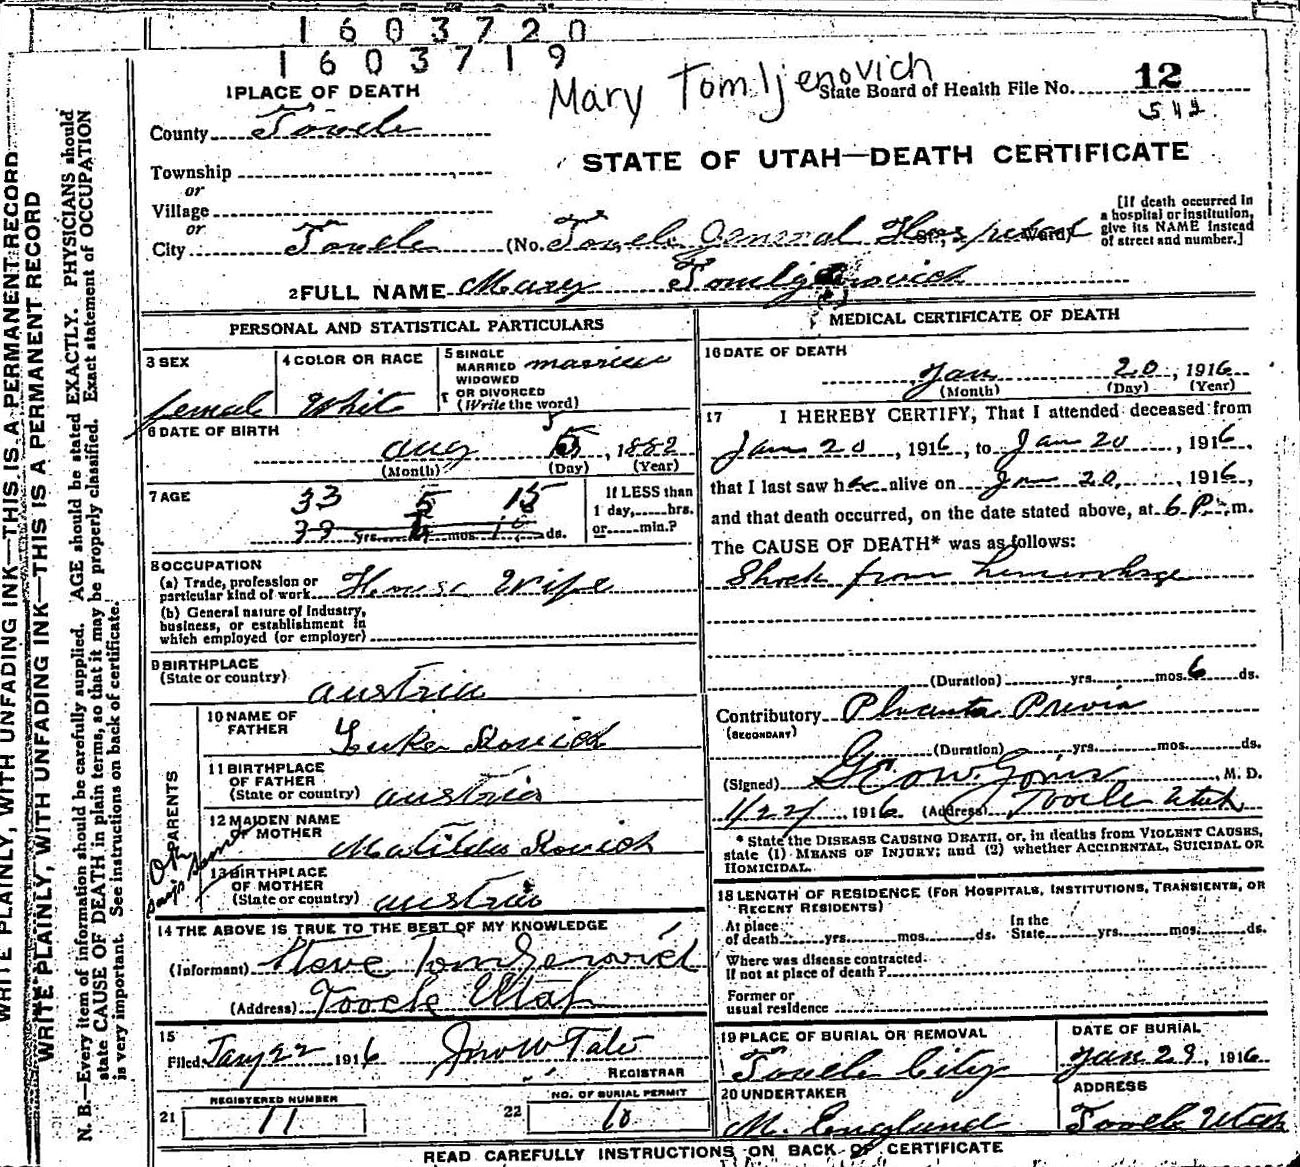 1603720
1603719
Mary Tomljenovich
1 PLACE OF DEATH
State Board of Health File No. 12
County Tooele
STATE OF UTAH—DEATH CERTIFICATE
Township
or
Village
or
City Tooele (No. Tooele General Hospital
[If death occurred in a hospital or institution, give its NAME instead of street and number.]
2 FULL NAME Mary
PERSONAL AND STATISTICAL PARTICULARS
3 SEX female
4 COLOR OR RACE White
5 SINGLE MARRIED WIDOWED OR DIVORCED (Write the word) married
6 DATE OF BIRTH
Aug 5, 1882
(Month) (Day) (Year)
7 AGE
33 5 15
yrs. mos. ds.
If LESS than 1 day, hrs. or min.?
8 OCCUPATION
(a) Trade, profession or particular kind of work House Wife
(b) General nature of Industry, business, or establishment in which employed (or employer)
9 BIRTHPLACE
(State or country) Austria
PARENTS
10 NAME OF FATHER Luke
11 BIRTHPLACE OF FATHER (State or country) Austria
12 MAIDEN NAME OF MOTHER Matilda
13 BIRTHPLACE OF MOTHER (State or country) Austria
14 THE ABOVE IS TRUE TO THE BEST OF MY KNOWLEDGE
(Informant) Steve
(Address) Tooele Utah
15
Filed Jany 22 1916 Jno W Tate
REGISTRAR
21 REGISTERED NUMBER 11
22 NO. OF BURIAL PERMIT 10
MEDICAL CERTIFICATE OF DEATH
16 DATE OF DEATH
Jan 20, 1916
(Month) (Day) (Year)
17 I HEREBY CERTIFY, That I attended deceased from
Jan 20, 1916, to Jan 20, 1916,
that I last saw her alive on Jan 20, 1916,
and that death occurred, on the date stated above, at 6 P. m.
The CAUSE OF DEATH* was as follows:
Shock from hemorrhage
(Duration) yrs. mos. 6 ds.
Contributory Placenta Previa
(SECONDARY)
(Duration) yrs. mos. ds.
(Signed) M. D.
1/22/ 1916 (Address) Tooele Utah
* State the DISEASE CAUSING DEATH, or, in deaths from VIOLENT CAUSES,
state (1) MEANS OF INJURY; and (2) whether ACCIDENTAL, SUICIDAL OR
HOMICIDAL.
18 LENGTH OF RESIDENCE (FOR HOSPITALS, INSTITUTIONS, TRANSIENTS, OR
RECENT RESIDENTS)
At place of death yrs. mos. ds. In the State yrs. mos. ds.
Where was disease contracted
If not at place of death?
Former or
usual residence
19 PLACE OF BURIAL OR REMOVAL
Tooele City
DATE OF BURIAL
Jan 23, 1916
20 UNDERTAKER
M. England
ADDRESS
Tooele Utah
READ CAREFULLY INSTRUCTIONS ON BACK OF CERTIFICATE
WRITE PLAINLY, WITH UNFADING INK—THIS IS A PERMANENT RECORD
WRITE PLAINLY, WITH UNFADING INK—THIS IS A PERMANENT RECORD
N. B.—Every item of information should be carefully supplied. AGE should be stated EXACTLY. PHYSICIANS should
state CAUSE OF DEATH in plain terms, so that it may be properly classified. Exact statement of OCCUPATION
is very important. See instructions on back of certificate.